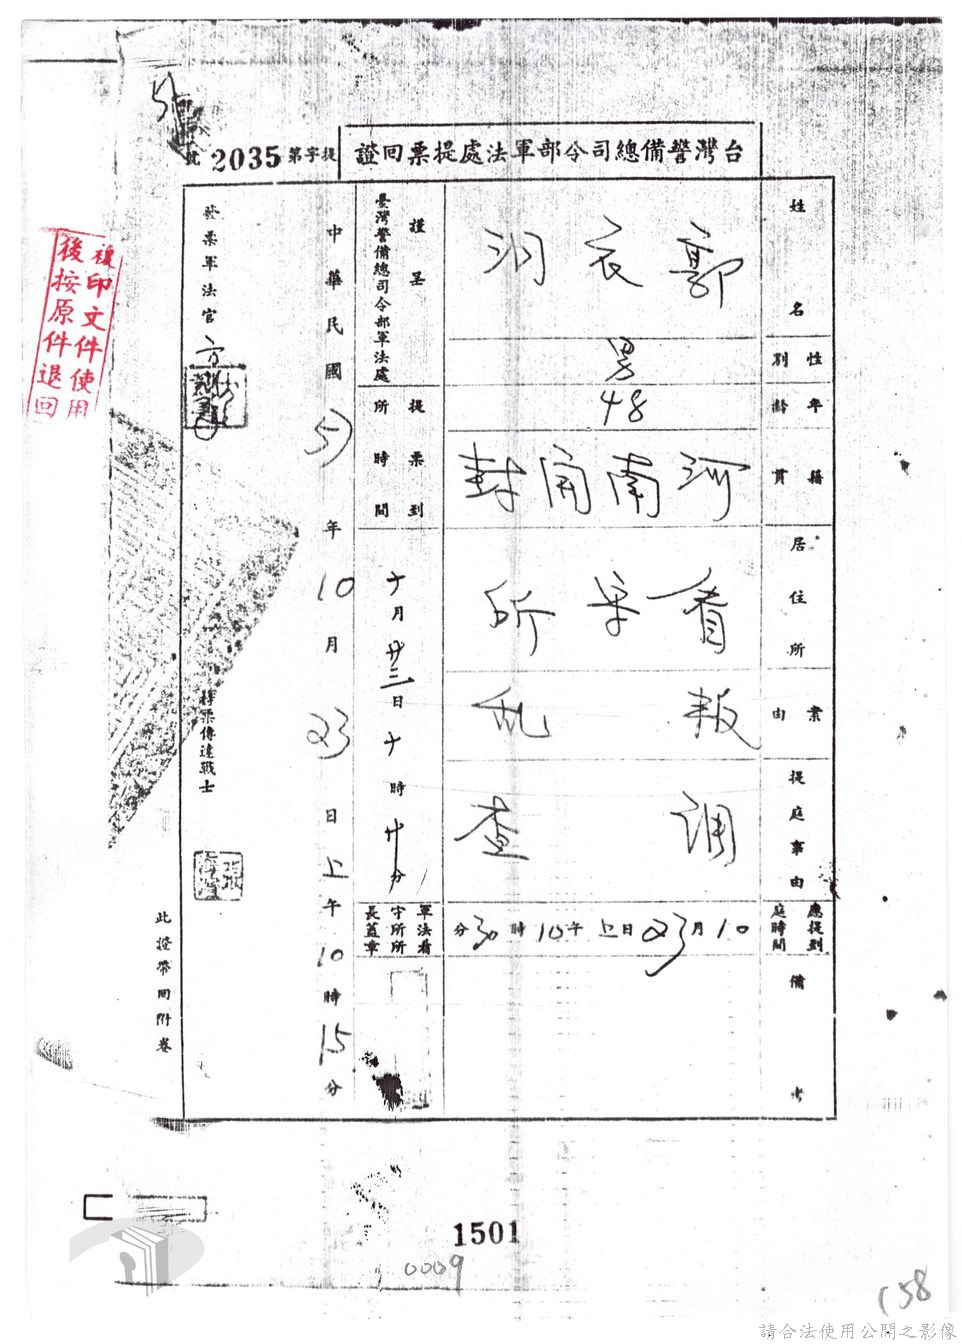 台灣警備總司令部軍法處提票回證
提字第2035號
姓名
郭衣洞
性別
男
年齡
48
籍貫
河南開封
居住所
看守所
案由
叛乱
提庭事由
調查
應提到庭時間
10月23日上午10時30分
備考
謹呈
臺灣警備總司令部軍法處
提票到所時間
十月廿三日十時廿分
軍法看守所所長蓋章
中華民國57年10月23日上午10時15分
發票軍法官
方
持票傳達戰士
張
此證帶回附卷
複印文件使用
後按原件退回
1501
0009
158
請合法使用公開之影像